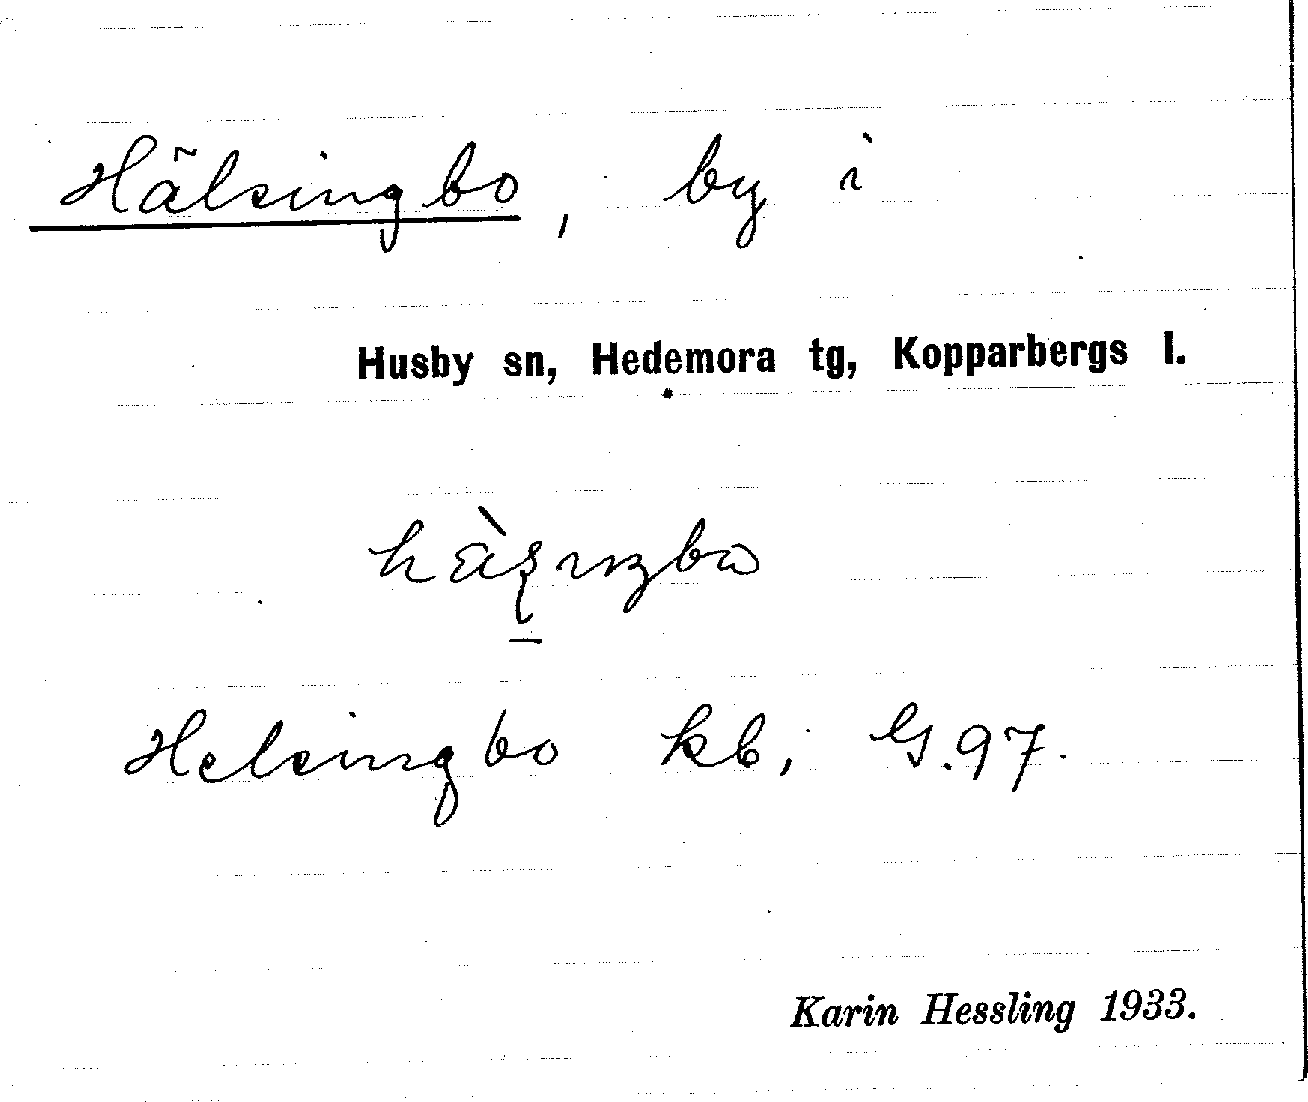 Hälsingbo, by i
Husby sn, Hedemora tg, Kopparbergs l.
Helsingbo kb, G.97.
Karin Hessling 1933.